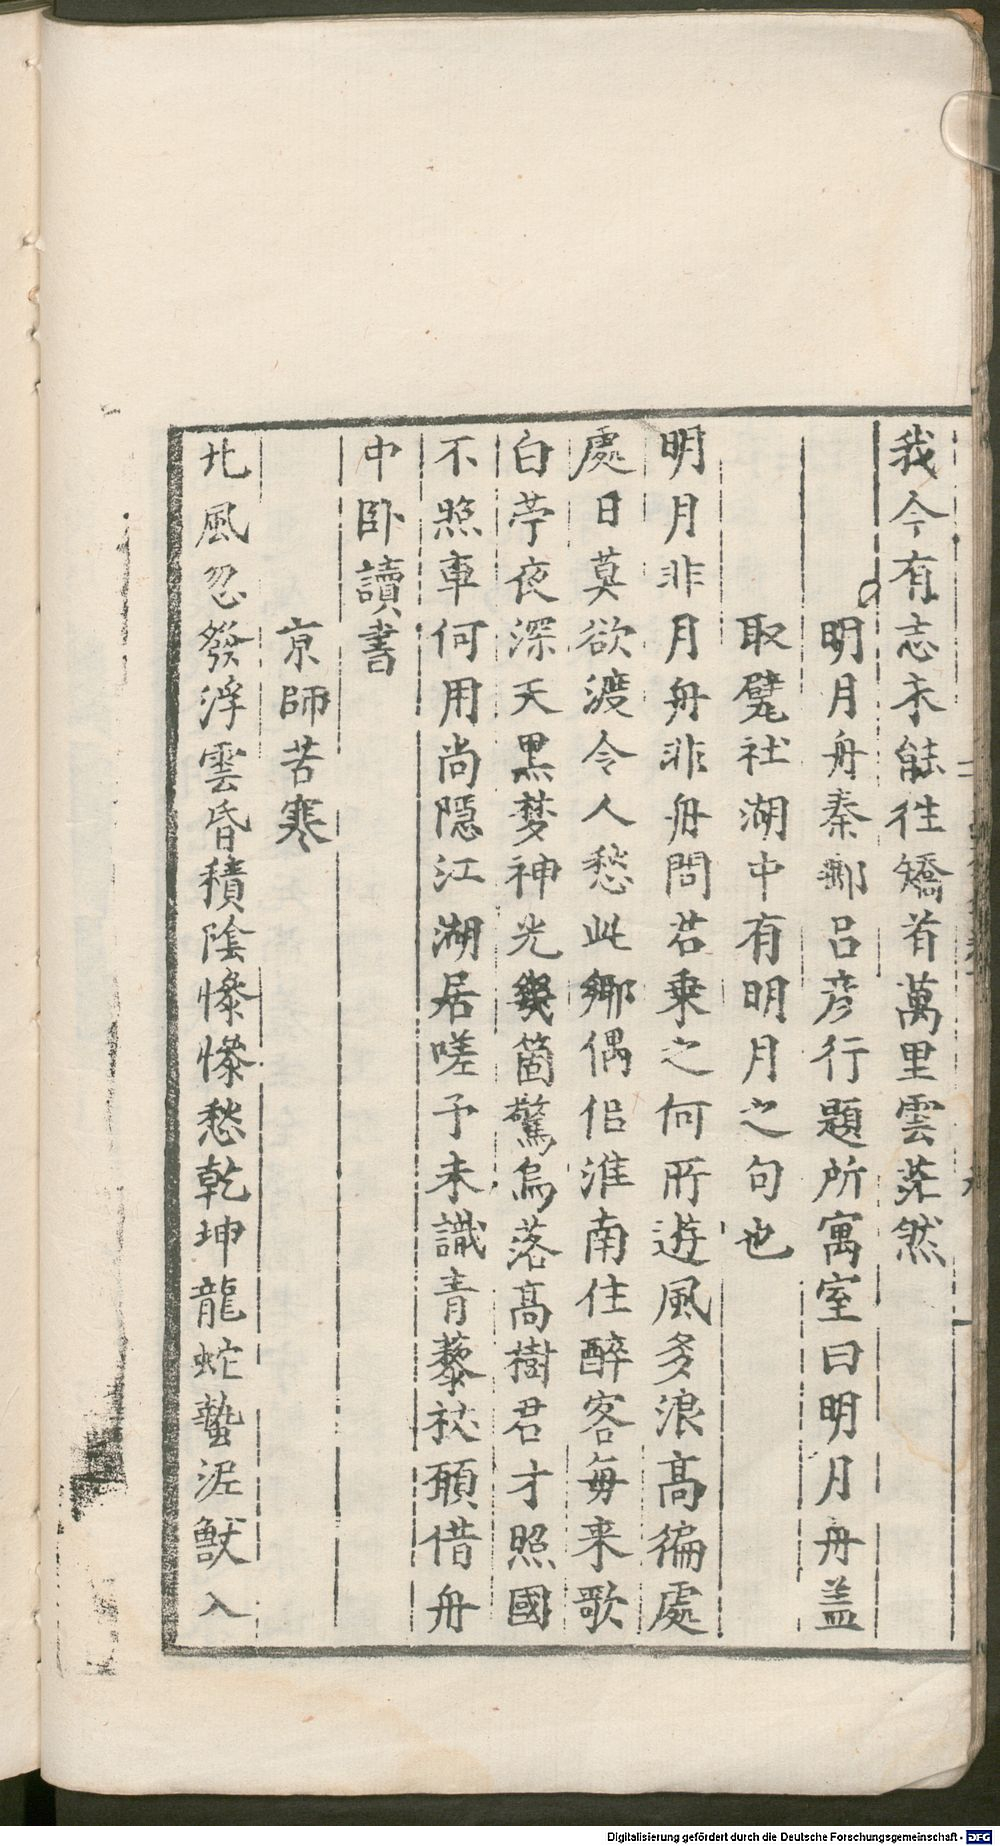 我今有志未能徃矯首萬里雲茫然
明月舟秦郵呂彦行題所寓室曰明月舟盖
取甓社湖中有明月之句也
明月非月舟非舟問君乗之何所遊風多浪高徧處
處日莫欲渡令人愁此鄉偶侣淮南住醉客每来歌
白苧夜深天黒夢神光幾箇驚烏落高樹君才照國
不照車何用尚隠江湖居嗟予未識青藜杖願借舟
中卧讀書
京師苦寒
北風忽發浮雲昏積陰慘慘愁乾坤龍蛇蟄泥獸入
Digitalisierung gefördert durch die Deutsche Forschungsgemeinschaft - DFG